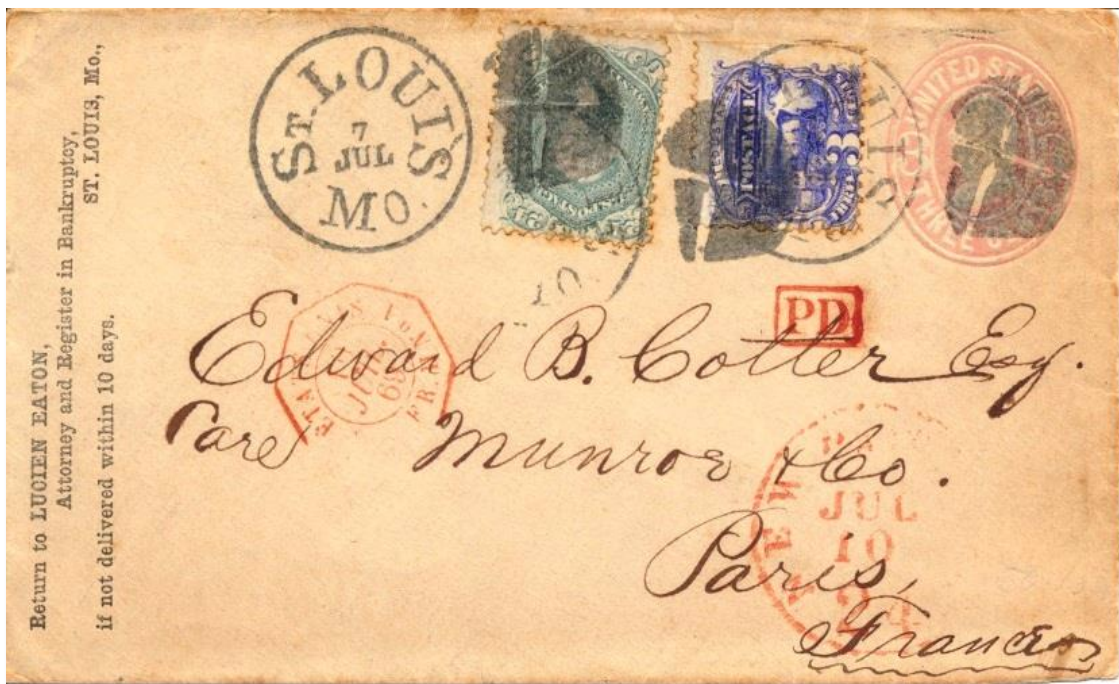 Return to LUCIEN EATON,
Attorney and Register in Bankruptcy,
ST. LOUIS, Mo.,
if not delivered within 10 days.
ST. LOUIS
7
JUL
Mo.
POSTAGE
3
THREE
UNITED
THREE
PD
ETATS
FR.
Edward B. Cotter Esq.
Care Munroe & Co.
Paris,
France
NEW
JUL
10